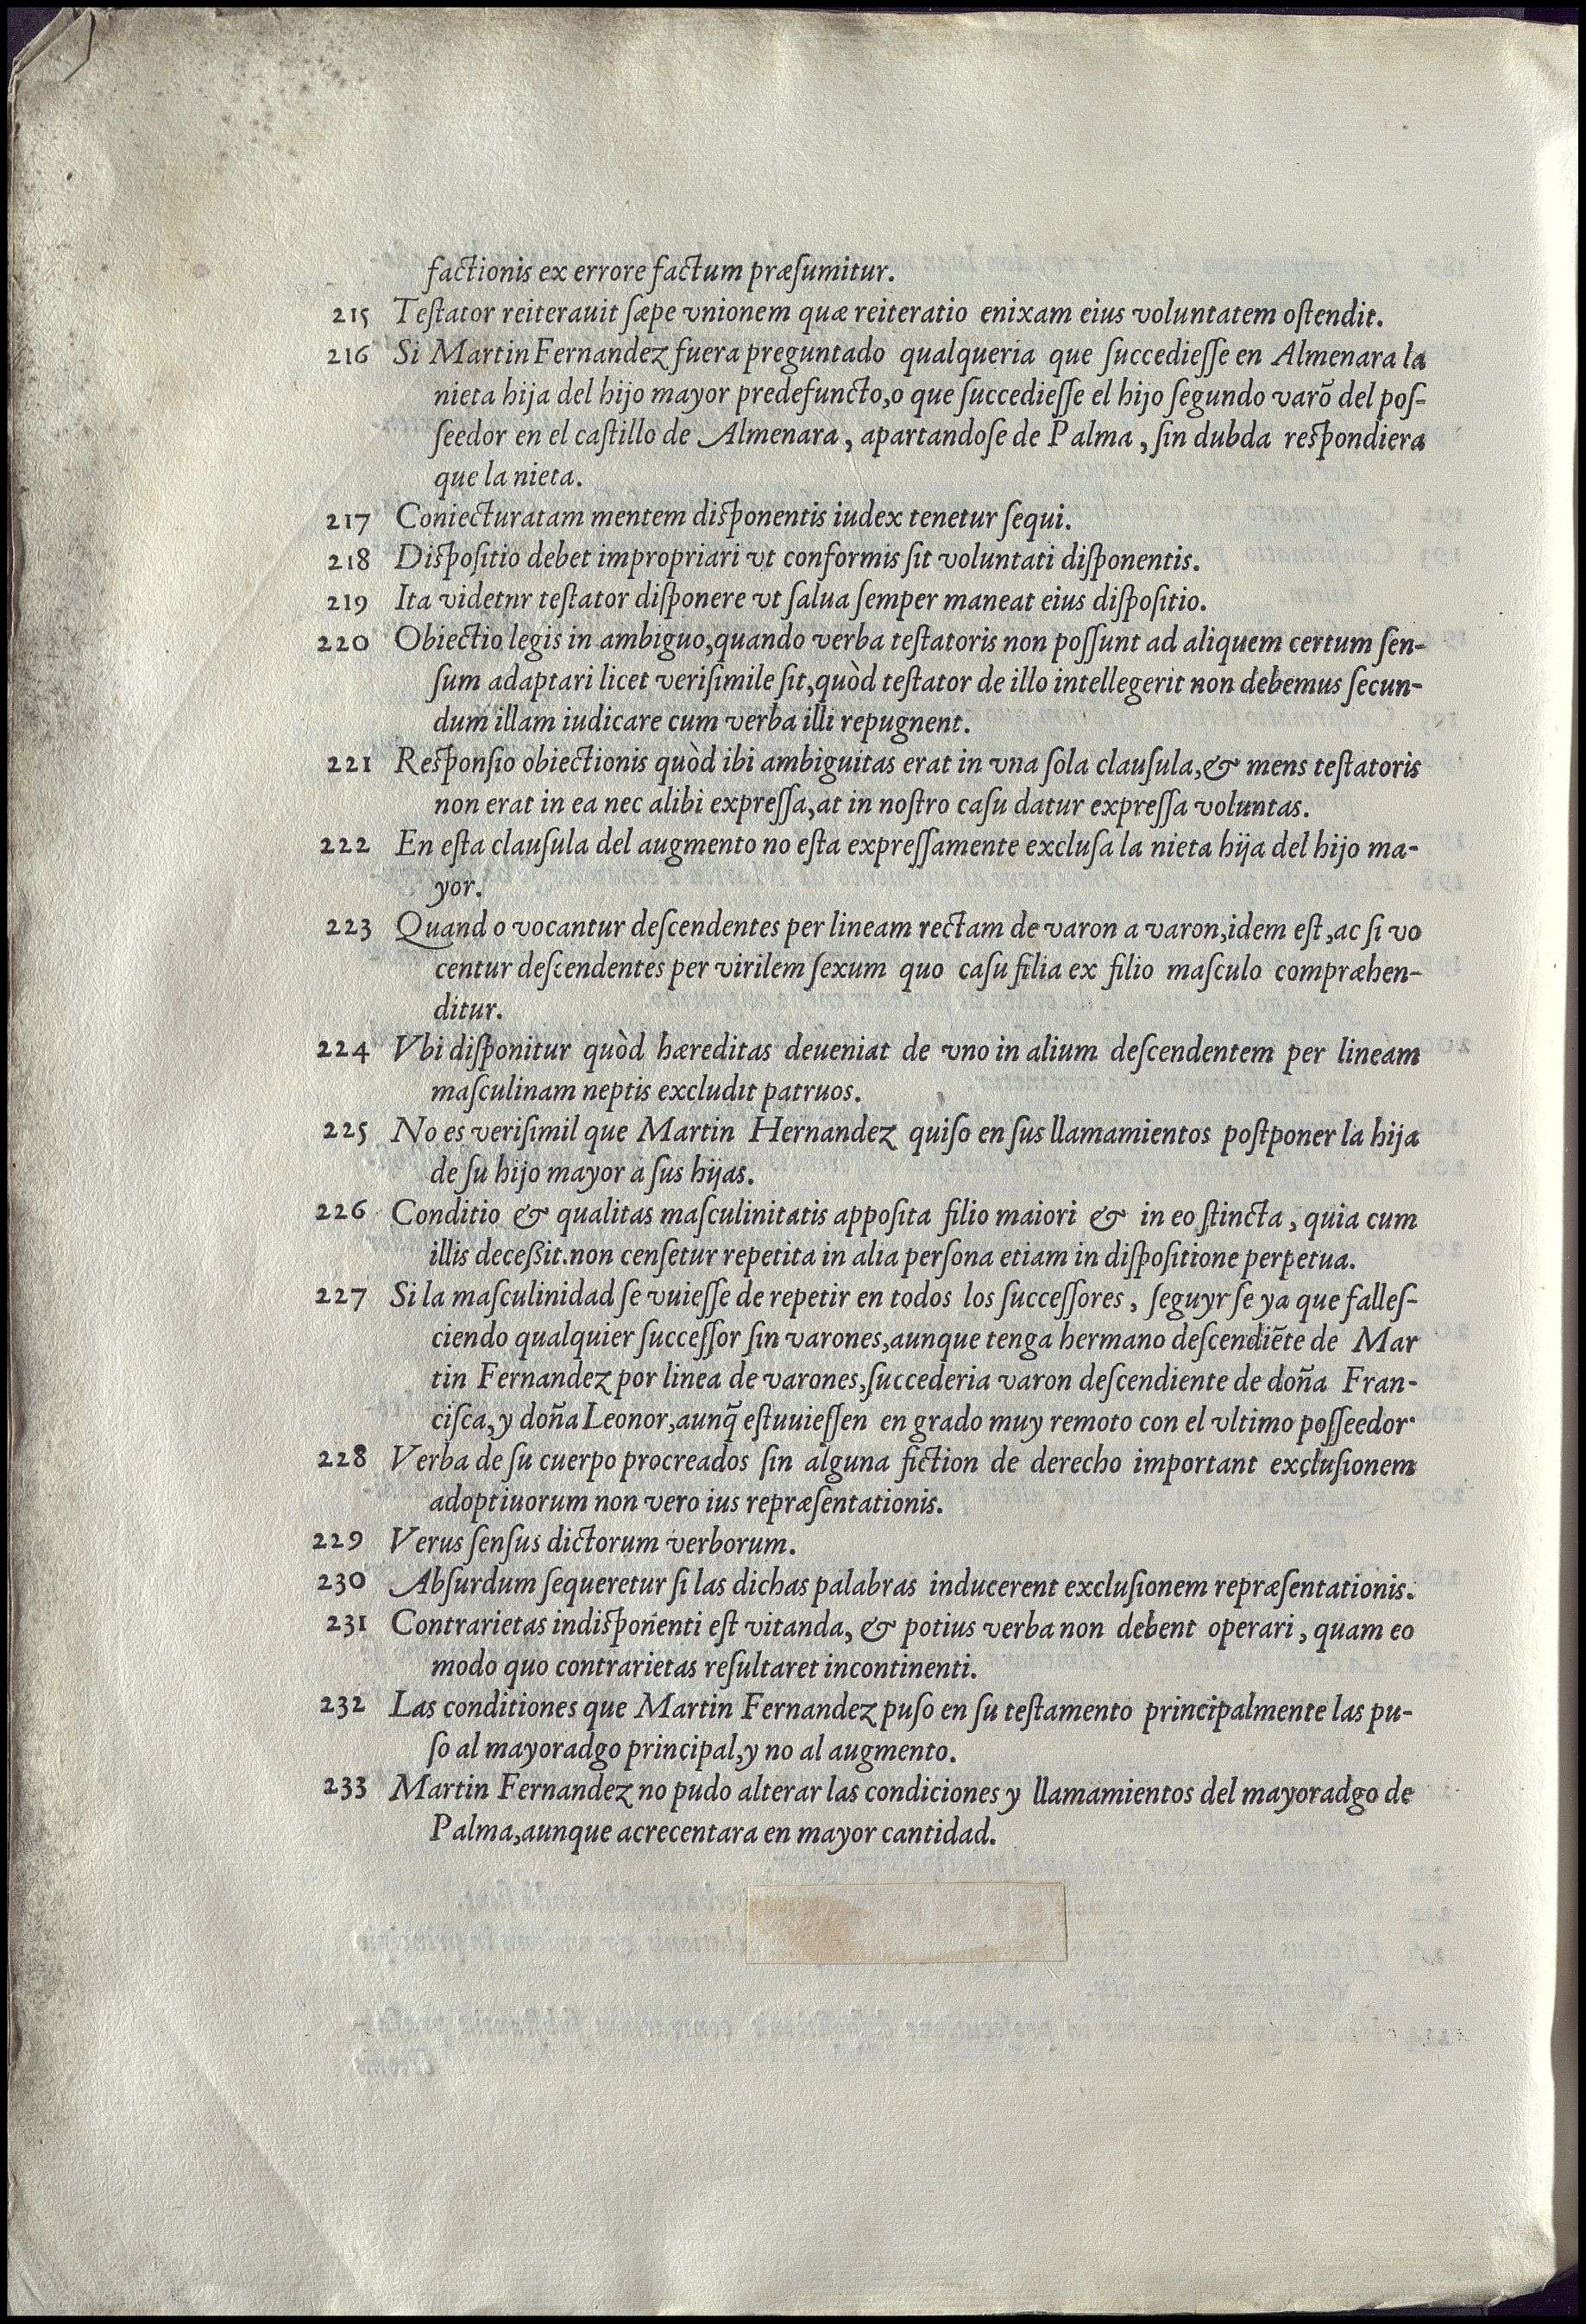 factionis ex errore factum præsumitur.
215 Teſtator reiterauit ſæpe vnionem quæ reiteratio enixam eius voluntatem oſtendit.
216 Si Martin Fernandez fuera preguntado qualqueria que ſuccedieſſe en Almenara la
nieta hija del hijo mayor predefuncto,o que ſuccedieſſe el hijo ſegundo varõ del poſ-
ſeedor en el caſtillo de Almenara, apartandoſe de Palma, ſin dubda reſpondiera
que la nieta.
217 Coniecturatam mentem diſponentis iudex tenetur ſequi.
218 Diſpoſitio debet impropriari vt conformis ſit voluntati diſponentis.
219 Ita videtnr teſtator diſponere vt ſalua ſemper maneat eius diſpoſitio.
220 Obiectio legis in ambiguo,quando verba teſtatoris non poſſunt ad aliquem certum ſen-
ſum adaptari licet veriſimile ſit,quòd teſtator de illo intellegerit non debemus ſecun-
dum illam iudicare cum verba illi repugnent.
221 Reſponſio obiectionis quòd ibi ambiguitas erat in vna ſola clauſula,& mens teſtatoris
non erat in ea nec alibi expreſſa,at in noſtro caſu datur expreſſa voluntas.
222 En eſta clauſula del augmento no eſta expreſſamente excluſa la nieta hija del hijo ma-
yor.
223 Quand o vocantur deſcendentes per lineam rectam de varon a varon,idem eſt,ac ſi vo
centur deſcendentes per virilem ſexum quo caſu filia ex filio maſculo compræhen-
ditur.
224 Vbi diſponitur quòd hæreditas deueniat de vno in alium deſcendentem per lineam
maſculinam neptis excludit patruos.
225 No es veriſimil que Martin Hernandez quiſo en ſus llamamientos poſtponer la hija
de ſu hijo mayor a ſus hijas.
226 Conditio & qualitas maſculinitatis appoſita filio maiori & in eo ſtincta, quia cum
illis deceßit.non cenſetur repetita in alia perſona etiam in diſpoſitione perpetua.
227 Si la maſculinidad ſe vuieſſe de repetir en todos los ſucceſſores, ſeguyr ſe ya que falleſ-
ciendo qualquier ſucceſſor ſin varones,aunque tenga hermano deſcendiẽte de Mar
tin Fernandez por linea de varones,ſuccederia varon deſcendiente de doña Fran-
ciſca,y doña Leonor,aunq̃ eſtuuieſſen en grado muy remoto con el vltimo poſſeedor.
228 Verba de ſu cuerpo procreados ſin alguna fiction de derecho important excluſionem
adoptiuorum non vero ius repræſentationis.
229 Verus ſenſus dictorum verborum.
230 Abſurdum ſequeretur ſi las dichas palabras inducerent excluſionem repræſentationis.
231 Contrarietas indiſponenti eſt vitanda, & potius verba non debent operari, quam eo
modo quo contrarietas reſultaret incontinenti.
232 Las conditiones que Martin Fernandez puſo en ſu teſtamento principalmente las pu-
ſo al mayoradgo principal,y no al augmento.
233 Martin Fernandez no pudo alterar las condiciones y llamamientos del mayoradgo de
Palma,aunque acrecentara en mayor cantidad.